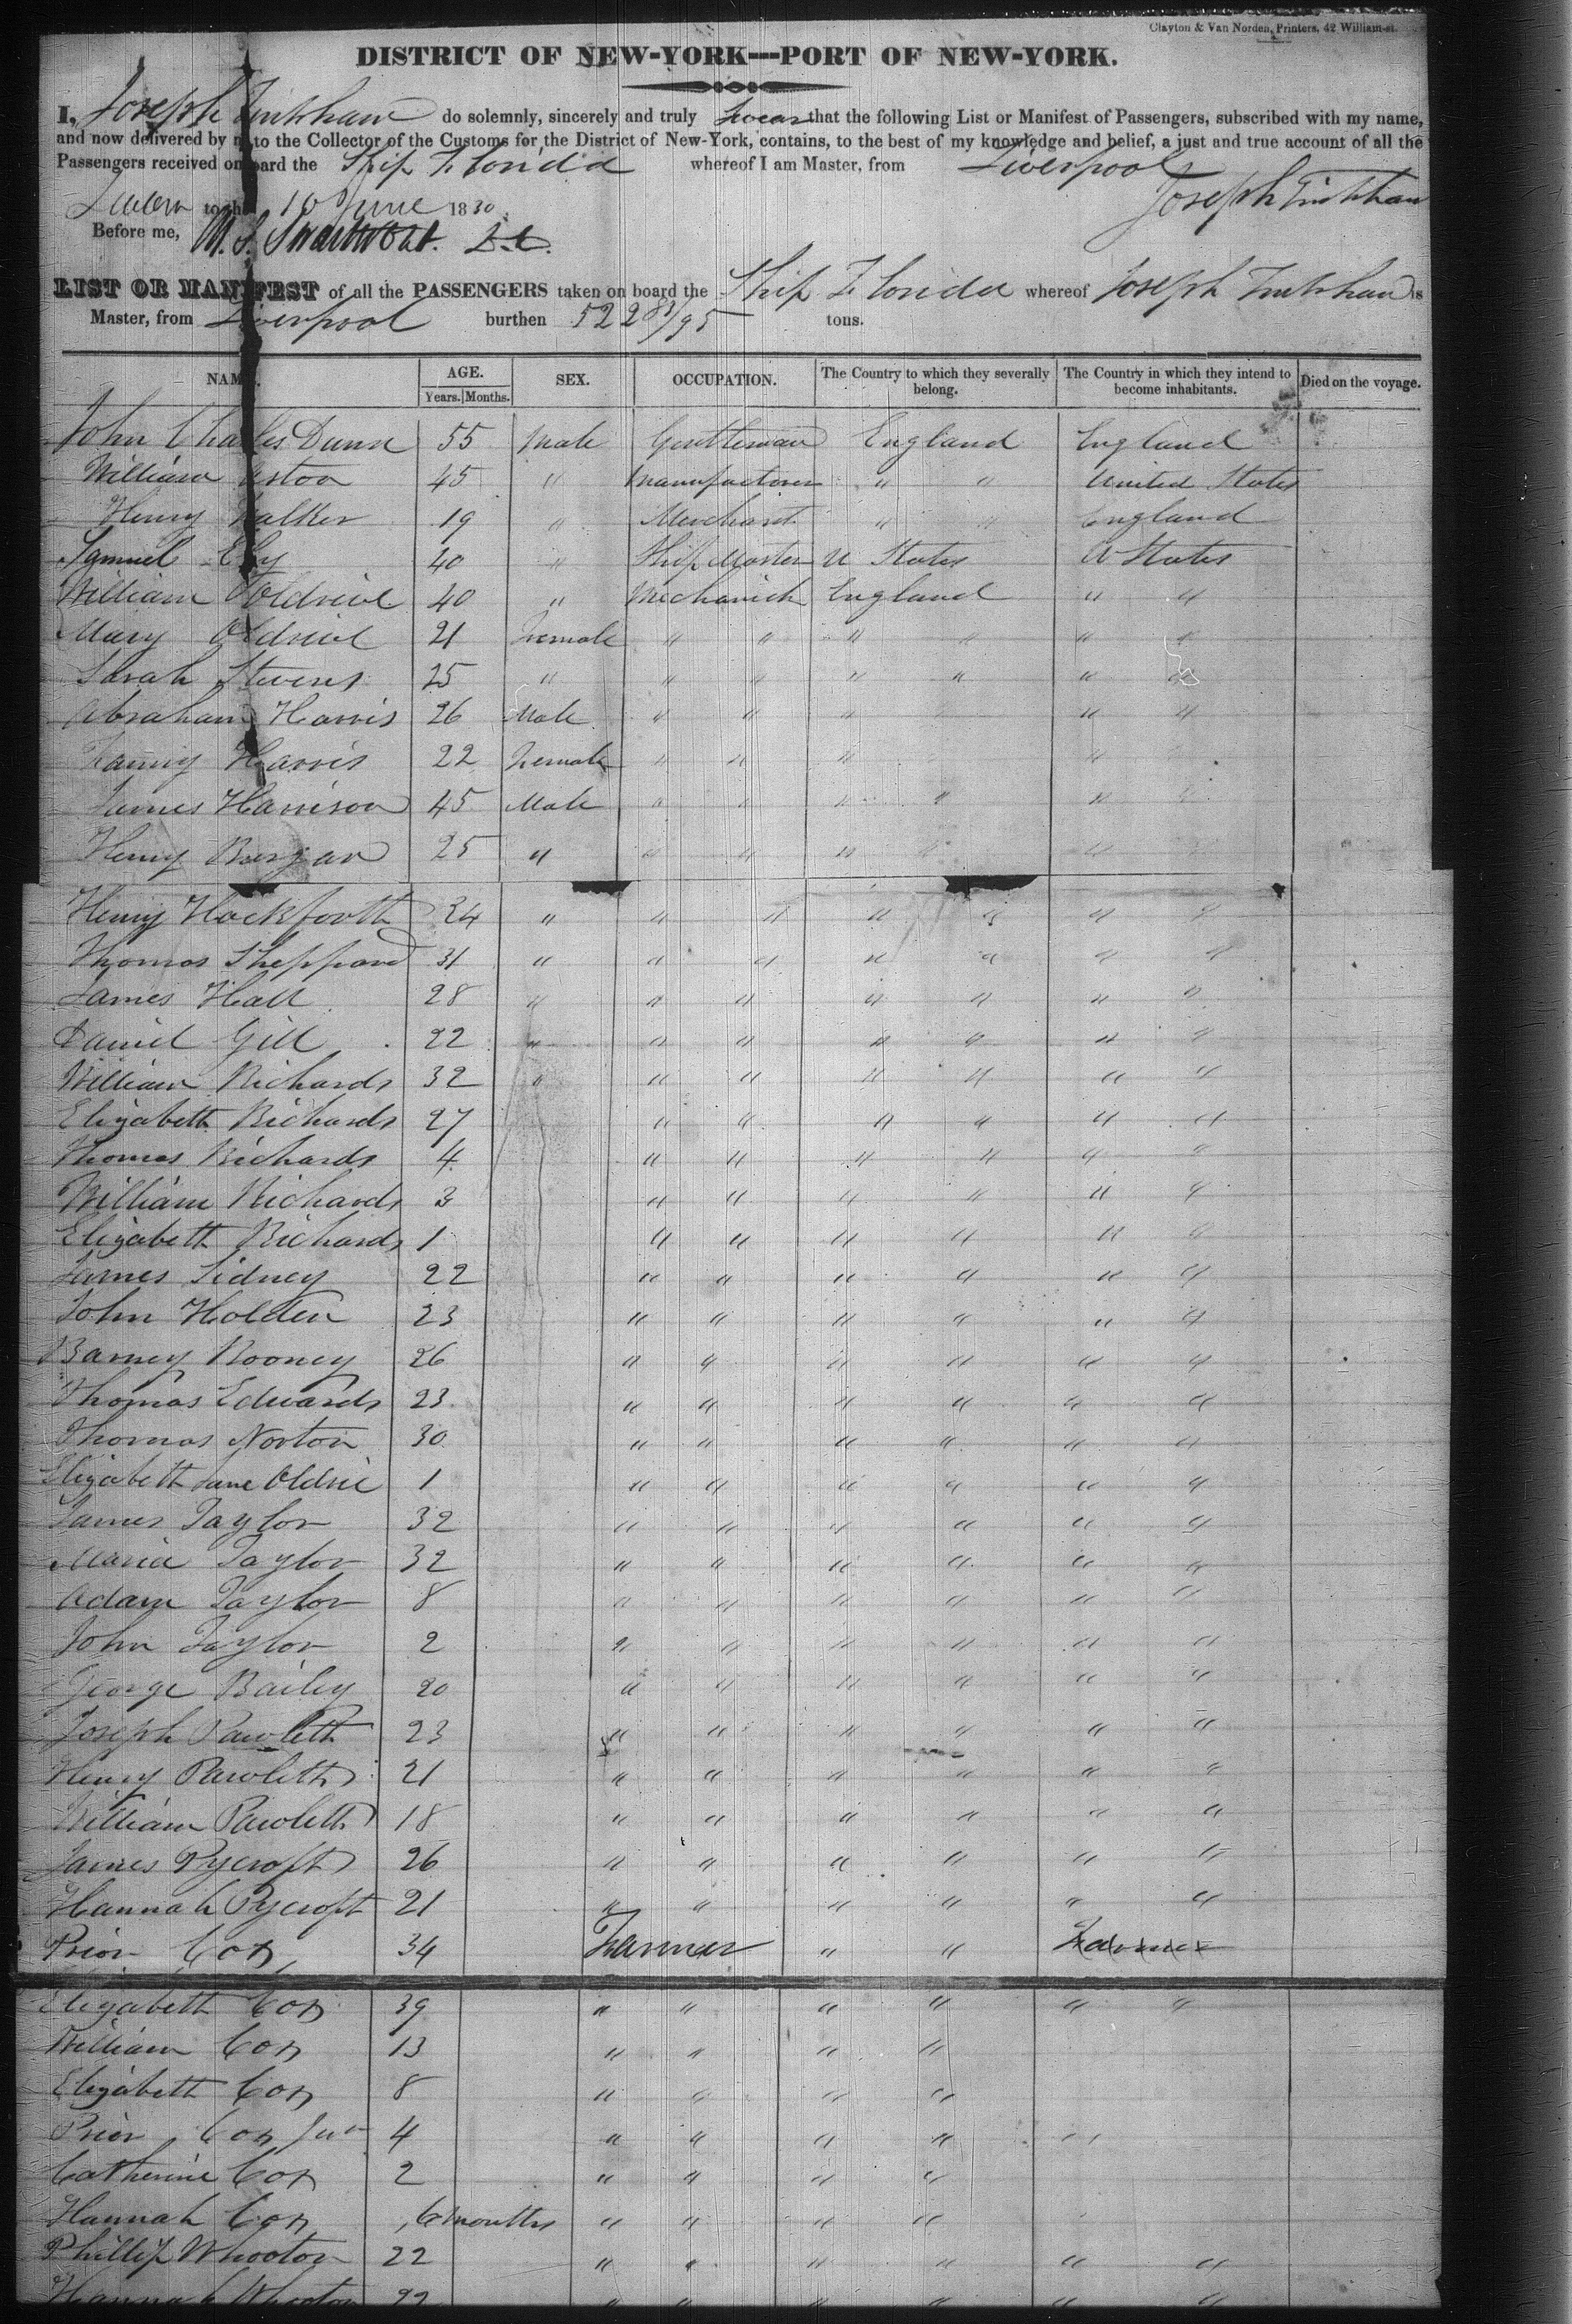 Clayton & Van Norden, Printers, 42 William-st.
DISTRICT OF NEW-YORK---PORT OF NEW-YORK.
I, Joseph Tinkham do solemnly, sincerely and truly swear that the following List or Manifest of Passengers, subscribed with my name,
and now delivered by to the Collector of the Customs for the District of New-York, contains, to the best of my knowledge and belief, a just and true account of all the
Passengers received on board the Ship Florida whereof I am Master, from Liverpool
Sworn to th 10 June 1830. Joseph Tinkham
Before me, M. S. Swartwout. D.C.
LIST OR MANIFEST of all the PASSENGERS taken on board the Ship Florida whereof Joseph Tinkham is
Master, from Liverpool burthen 522 83/95 tons.
NAME. AGE. SEX. OCCUPATION. The Country to which they severally belong. The Country in which they intend to become inhabitants. Died on the voyage.
Years. Months.
John Charles Dunn 55 Male Gentleman England England
William 45 " Manufacturer " " United States
Henry Walker 19 " Merchant " " England
Samuel 40 " Ship Master U States U States
William Oldrive 40 " Mechanick England " "
Mary Oldrive 21 Female " " " " " "
Sarah Stevens 25 " " " " " "
Abraham Harris 26 Male " " " " "
Fanny Harris 22 Female " " " "
James Harrison 45 Male " " " " "
Henry 25 " " " " " "
Henry Hockforth 24 " " " " " " "
Thomas Sheppard 31 " " " " " " "
James Hall 28 " " " " " " "
Daniel Gill 22 " " " " " " "
William Richards 32 " " " " " " "
Elizabeth Richards 27 " " " " " "
Thomas Richards 4 " " " " " "
William Richards 3 " " " " " "
Elizabeth Richards 1 " " " " " "
James Sidney 22 " " " " " "
John Holden 23 " " " " " "
Barney Rooney 26 " " " " " "
Thomas Edwards 23 " " " " " "
Thomas Norton 30 " " " " " "
Elizabeth Jane Oldrie 1 " " " " " "
James Taylor 32 " " " " " "
Maria Taylor 32 " " " " " "
Adam Taylor 8 " " " " " "
John Taylor 2 " " " " " "
George Bailey 20 " " " " " "
Joseph Pawleth 23 " " " " " "
Henry Pawleth 21 " " " " " "
William Pawleth 18 " " " " " "
James Rycroft 26 " " " " " "
Hannah Rycroft 21 " " " " " "
Prior Cox 34 Farmer " " Farmer
Elizabeth Cox 39 " " " " " "
William Cox 13 " " " "
Elizabeth Cox 8 " " " "
Prior Cox Junr 4 " " " " "
Catherine Cox 2 " " " "
Hannah Cox 6 months " " " "
Phillip Whooton 22 " " " " " "
Hannah Whooton 22 " " " " " "